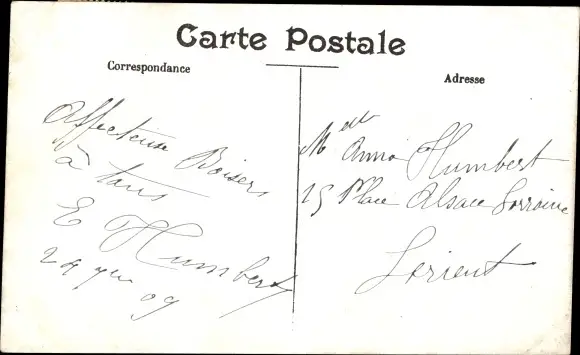 Carte Postale
Correspondance
Affectueux Baisers
à tous
E Humbert
24 09
Adresse
Melle Anna Humbert
15 Place Alsace Lorraine
Lorient